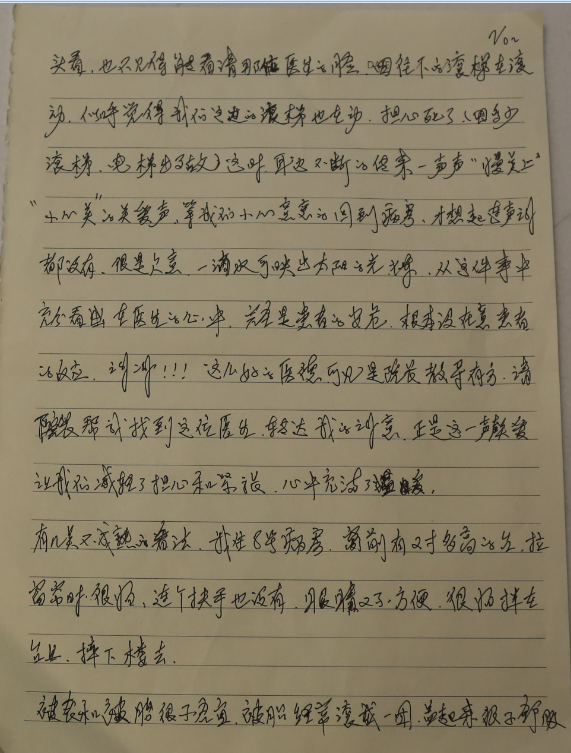 No2
头看，也不见得能看清那位医生的脸。因往下的滚梯在滚
动，似乎觉得我们这边的滚梯也在动，担心死了（因多少
滚梯、电梯出事故）这时耳边不断的传来一声声“慢关上”
“小心关”的关爱声，等我们小心翼翼的回到病房，才想起连声谢
都没有，很是欠意，一滴水可映出太阳的光辉，从这件事中
充分看出在医生的心中，关注是患者的安危，根本没在意患者
的反应，谢谢!!! 这么好的医德可见是院长教导有方，请
院长帮我找到这位医生，转达我的谢意，正是这一声声关爱
让我们减轻了担心和紧张，心中充满了温暖。
有几点不成熟的看法，我住8号病房，窗前有2寸多高的台，拉
窗帘时很怕，连个扶手也没有，眼睛又不方便，很怕摔在
台上，摔下楼去。
被套和被胎很不适宜，被胎经常滚成一团，盖起来很不舒服